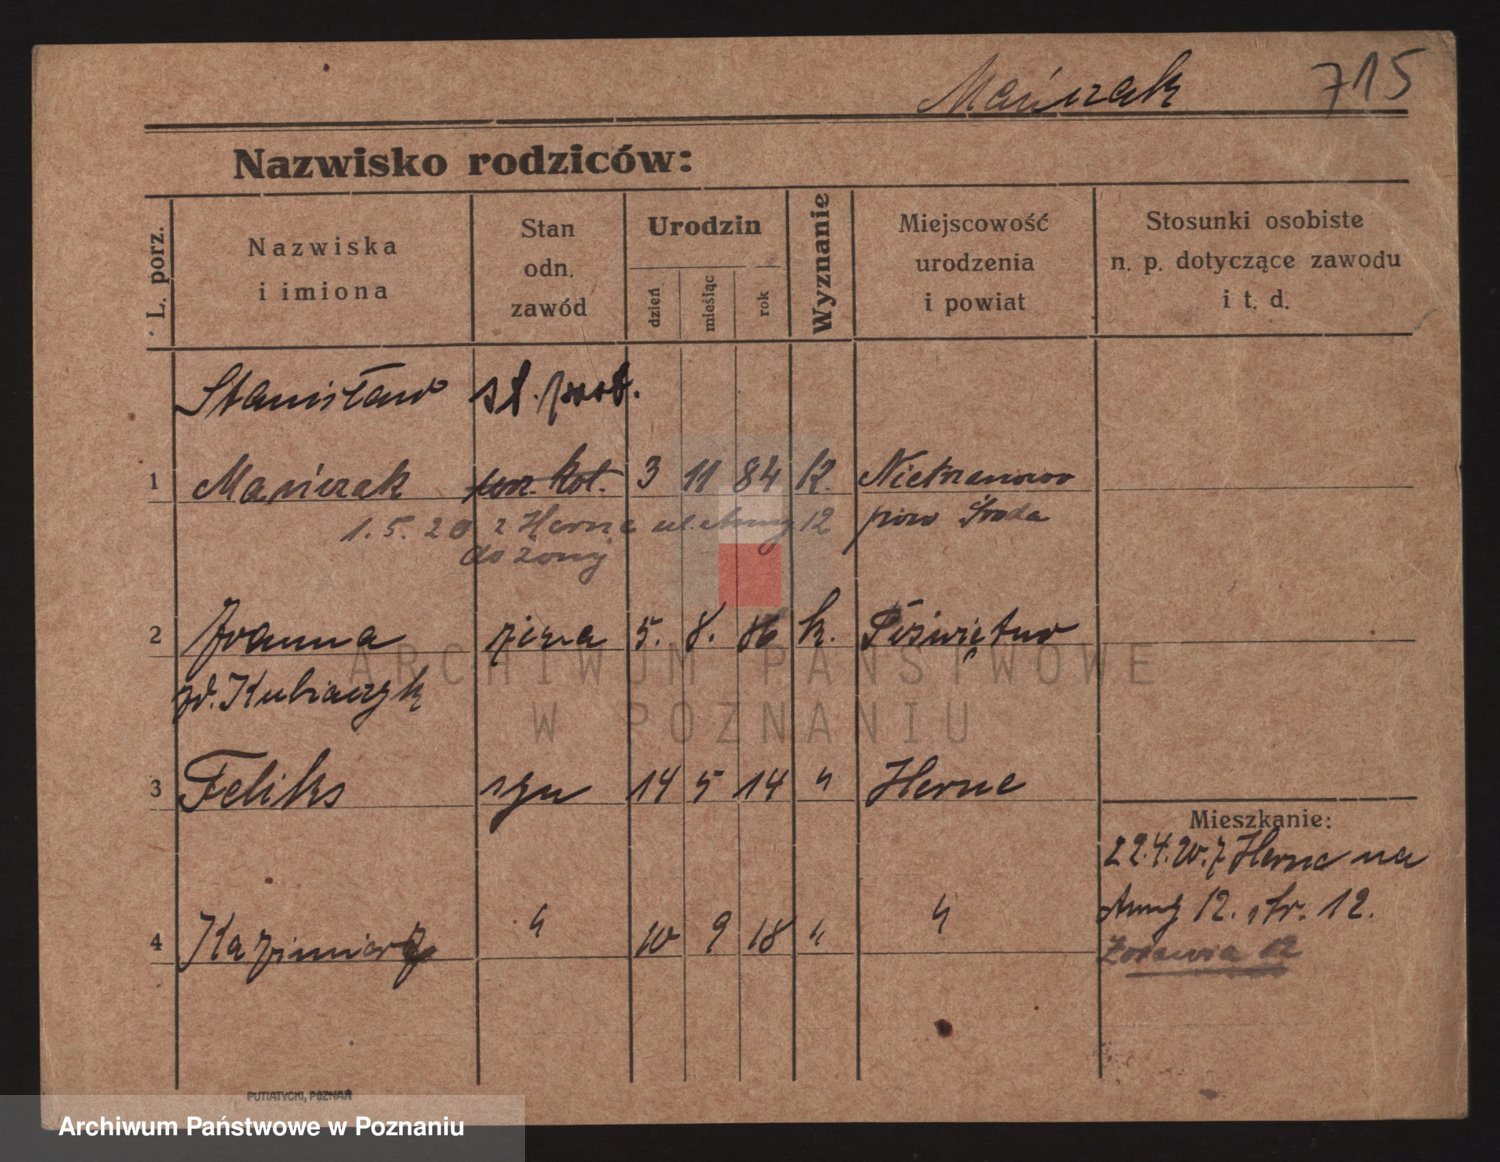 Mańczak 715
Nazwisko rodziców:
L. porz.
Nazwiska
i imiona
Stan
odn.
zawód
Urodzin
dzień
miesiąc
rok
Wyznanie
Miejscowość
urodzenia
i powiat
Stosunki osobiste
n. p. dotyczące zawodu
i t. d.
Stanisław
1 Mańczak 3 11 84 k. Nietrzanowo
pow Środa
1.5.20 z Herne ul. 12
do żony
2 Joanna żona 5. 8. 86 k. Pięświętno
zd. Kubiaczyk
3 Feliks syn 14 5 14 " Herne
Mieszkanie:
22.4.20. z Herne na
12. str. 12.
4 Kazimierz " 10 9 18 " "
12
PUTIATYCKI, POZNAŃ
ARCHIWUM PAŃSTWOWE
W POZNANIU
Archiwum Państwowe w Poznaniu